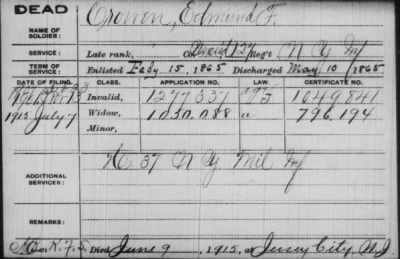 DEAD
NAME OF SOLDIER: Edmund F.
SERVICE: Late rank, Co. 127 Reg't N Y Inf
TERM OF SERVICE: Enlisted Feby 15, 1865 Discharged May 10, 1865
DATE OF FILING. CLASS. APPLICATION NO. LAW. CERTIFICATE NO.
Invalid, 1277337 1049841
1915 July 7 Widow, 1050088 " 796,194
Minor,
ADDITIONAL SERVICES: 37 N Y Mil Inf
REMARKS:
Died June 9, 1915, at Jersey City, N.J.